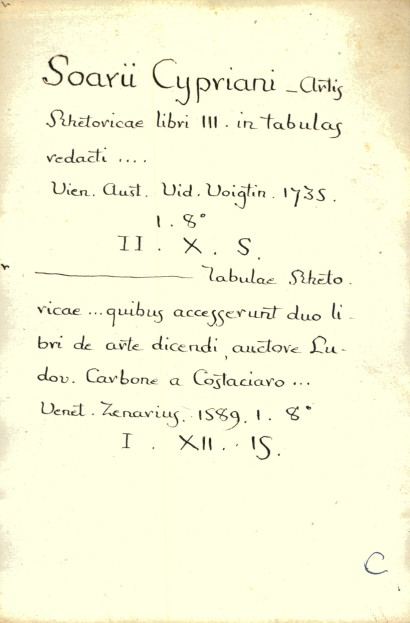 Soarii Cypriani - Artis
Rhetoricae libri III. in tabulas
redacti ....
Vien. Aust. Vid. Voigtin. 1735.
1. 8°
II. X. S.
——— Tabulae Rheto.
ricae ... quibus accesserunt duo li-
bri de arte dicendi, auctore Lu-
dov. Carbone a Costaciaro ...
Venet. Zenarius. 1589. 1. 8°
I. XII. 15.
C